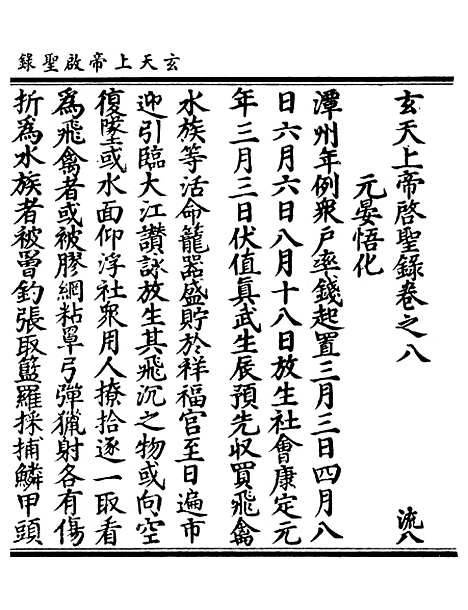 玄天上帝啟聖錄
玄天上帝啓聖錄卷之八
流八
元晏悟化
潭州年例衆户率錢起置三月三日四月八
日六月六日八月十八日放生社會康定元
年三月三日伏值真武生辰預先收買飛禽
水族等活命籠器盛貯於祥福宫至日遍市
迎引臨大江讃詠放生其飛沉之物或向空
復墜或水面仰浮社衆用人撩拾逐一取看
為飛禽者或被膠網粘單弓彈獵射各有傷
折為水族者被罾釣張取籃羅採捕鱗甲頭